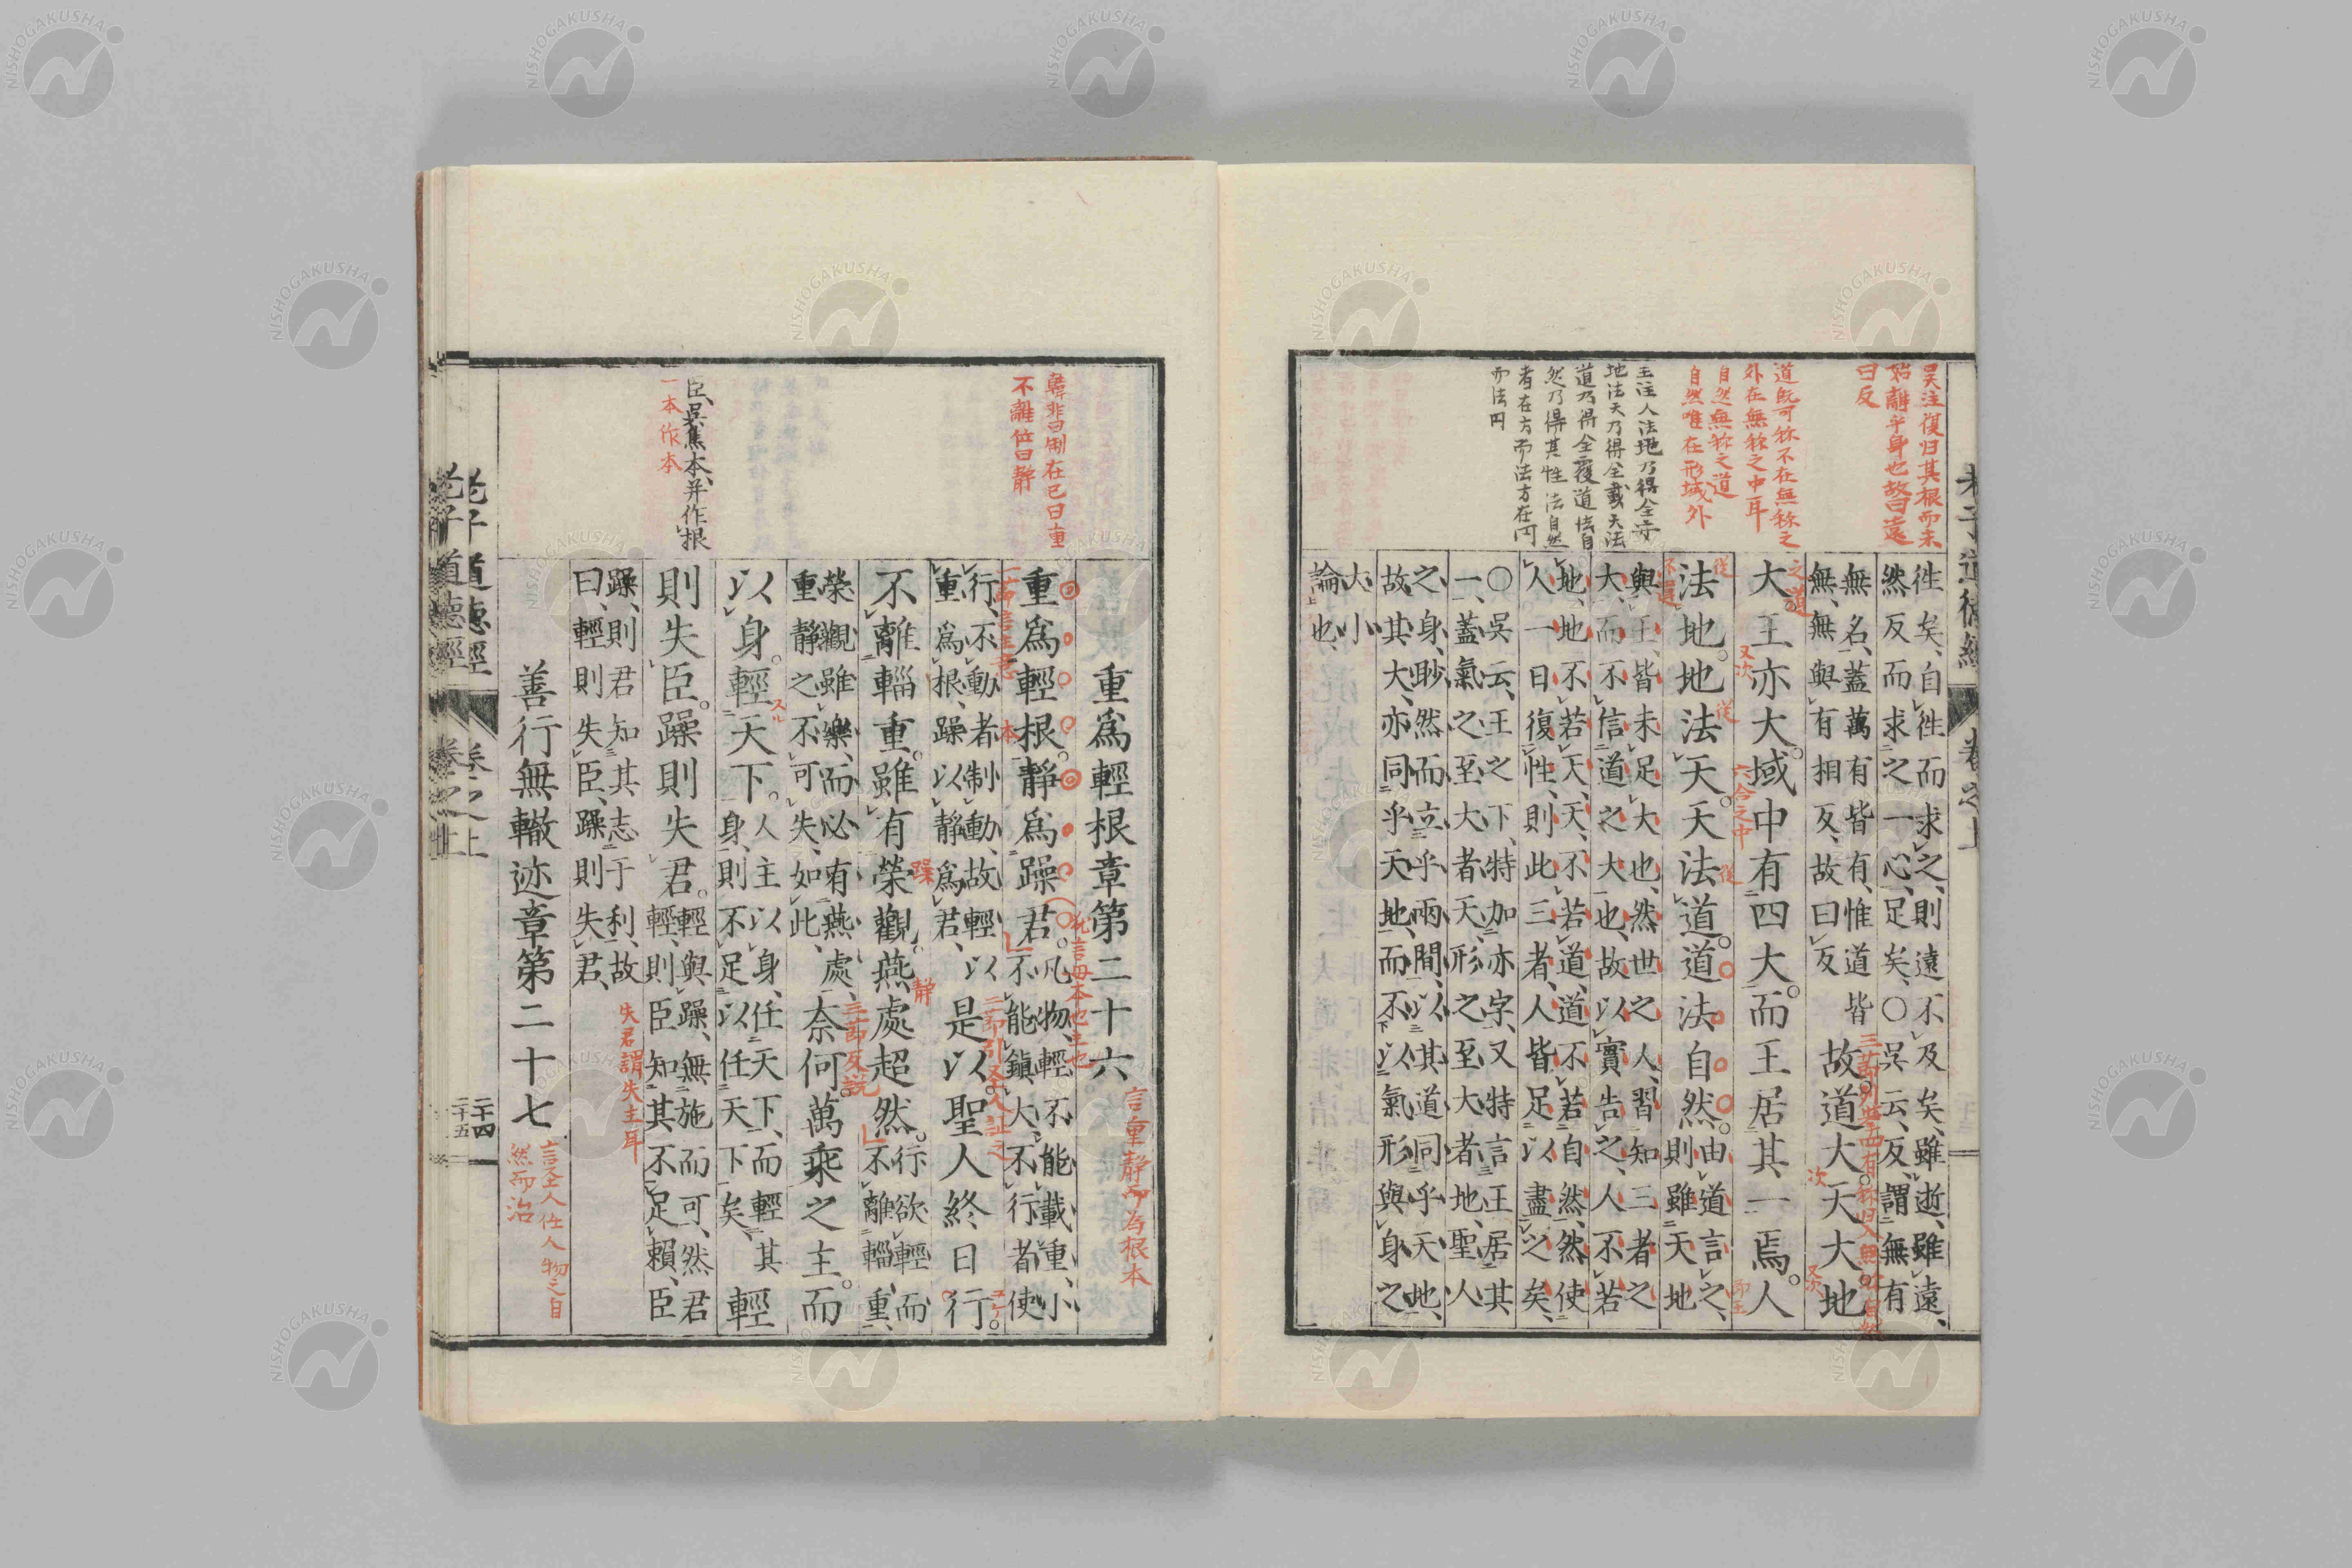 老子道德經
卷之上
呉注復归其根而未
始離乎身也故曰遠
曰反
道既可称不在無称之
外在無称之中耳
自然無称之道
自然唯在形域外
王注人法地乃得全安
地法天乃得全載天法
道乃得全覆道法自
然乃得其性法自然
者在方而法方在円
而法円
徃矣、自徃而求之、則遠不及矣、雖逝、雖遠、
然反而求之一心、足矣、〇呉云、反謂無有
無名、蓋萬有皆有、惟道皆
無、無與有相反、故曰反
故道大天大地
大王亦大。域中有四大。而王居其一焉。人
法地。地法天。天法道。道法自然。
由道言之、
則雖天地
與王、皆未足大也、然世之人、習知三者之
大、而不信道之大也、故以實告之、人不若
地、地不若天、天不若道、道不若自然、然使
人一日復性、則此三者、人皆足以盡之矣、
〇呉云、王之下、特加亦字、又特言王居其
一、蓋氣之至大者天、形之至大者地、聖人
之身、眇然而立乎兩間、以其道同乎天地、
故其大、亦同乎天地、而不以氣形與身之
大小
論也、
之道
又次
六合之中
次
又次
從
從
從
韓非曰制在已曰重
不離位曰靜
臣、呉焦本、并作根
一本作本
重爲輕根章第二十六
言重靜而為根本
重爲輕根。靜爲躁君。
凡物輕不能載重、小
不能鎮大、不行者使
行、不動者制動、故輕以
重爲根、躁以靜爲君、
是以聖人終日行
不離輜重。雖有榮觀。燕處超然。
行欲輕而
不離輜重、
榮觀雖樂、而必有燕處、
重靜之不可失、如此、
奈何萬乘之主。而
以身輕天下。
人主以身、任天下、而輕其
身、則不足以任天下矣、
輕
則失臣。躁則失君。
輕與躁、無施而可、然君
輕、則臣知其不足賴、臣
躁、則君知其志于利、故
曰、輕則失臣、躁則失君、
失君謂失主耳
善行無轍迹章第二十七
言圣人任人物之自
然而治
本
躁
靜
スル
老子道德經
卷之上
二十四
老子道德經
卷之上
二十五
NISHOGAKUSHA